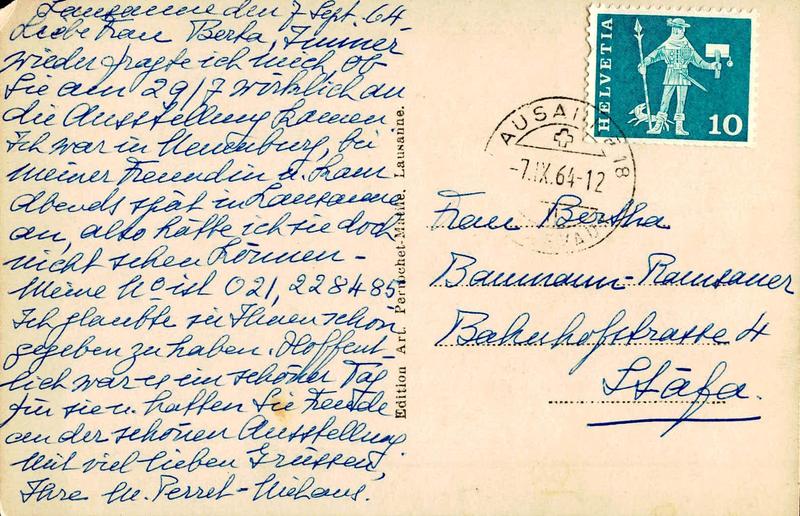 Lausanne den 7 Sept. 64
Liebe Frau Berta, Immer
wieder fragte ich mich, ob
Sie am 29/7 wirklich an
die Ausstellung kamen
Ich war in Neuenburg, bei
meiner Freundin u. kam
Abends spät in Lausanne
an, also hätte ich sie doch
nicht sehen können -
Meine No ist 021, 228485
Ich glaubte sie Ihnen schon
gegeben zu haben. Hoffent-
lich war es ein schöner Tag
für sie u. hatten Sie Freude
an der schönen Ausstellung
Mit viel lieben Grüssen,
Ihre M. Perret-Niehaus.
Edition Art. Perrochet-Matile, Lausanne.
HELVETIA
10
LAUSANNE 18
-7.IX.64-12
Frau Bertha
Baumann-Ramsauer
Bahnhofstrasse 4
Stäfa.